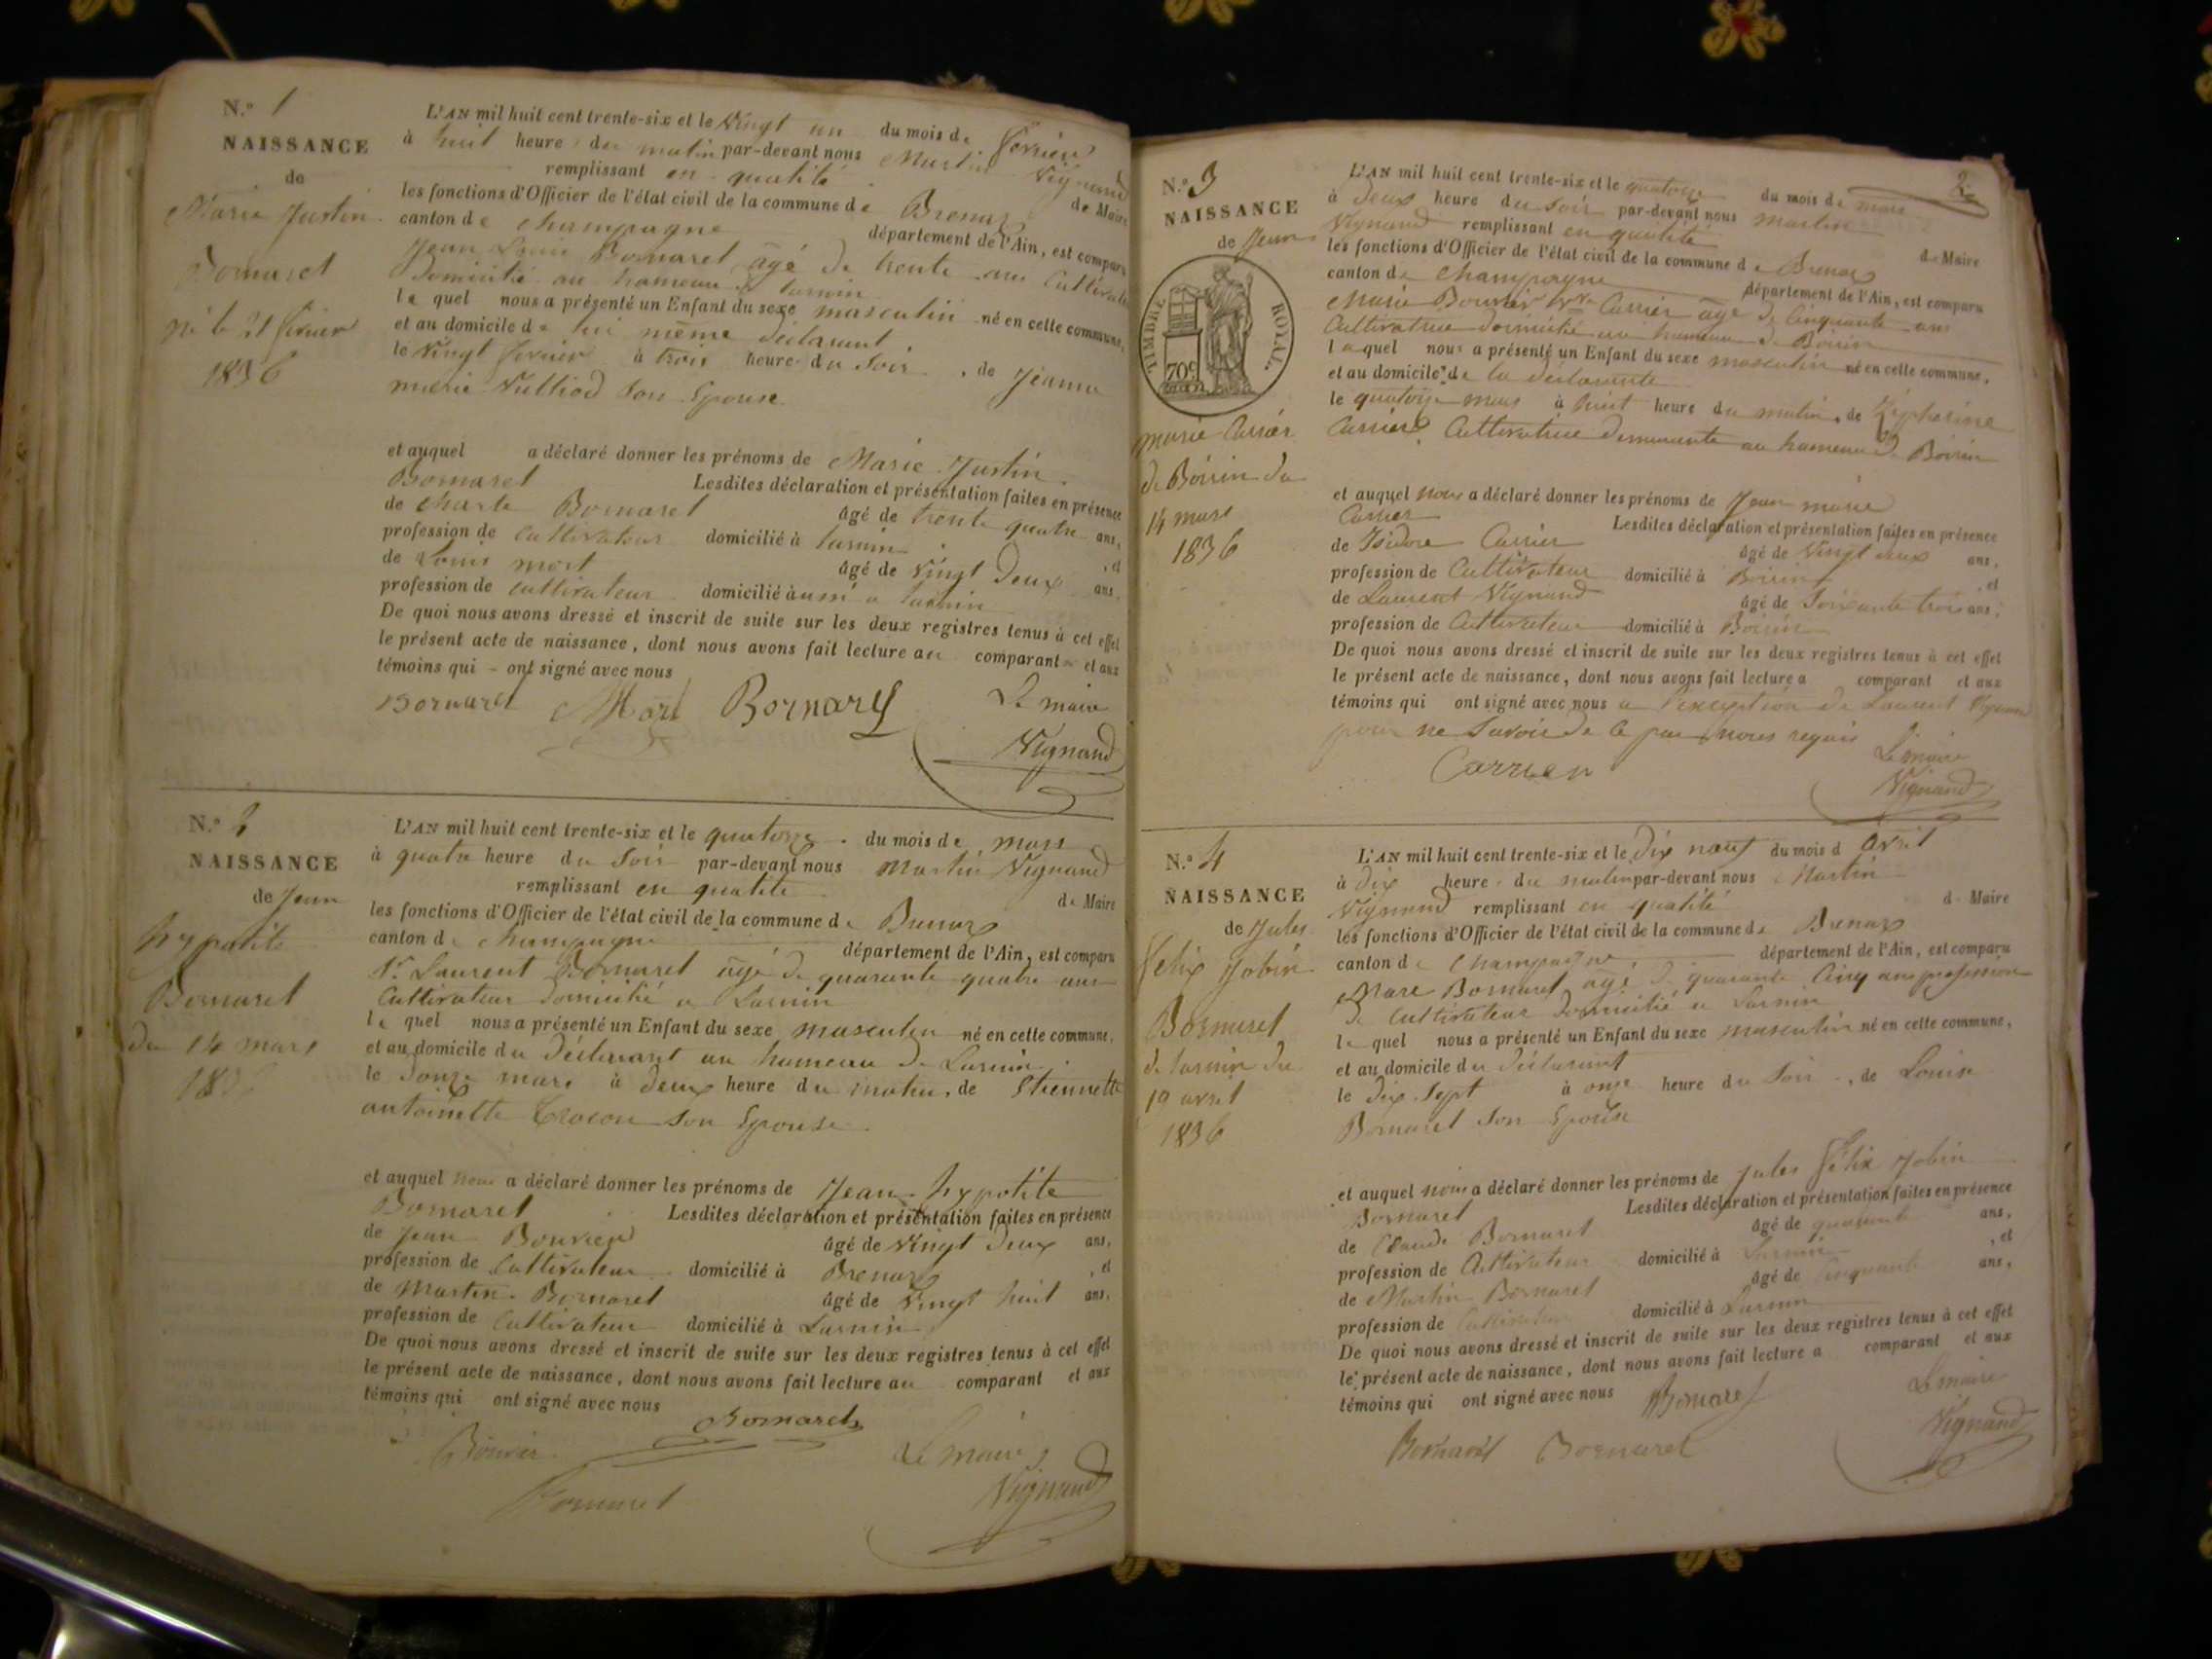 N.º 1
NAISSANCE
de
Marie Justin
Bornaret
né le 21 fevrier
1836
L'AN mil huit cent trente-six et le Vingt un du mois de fevrier
à huit heure du matin par-devant nous Martin Vignand
remplissant en qualité de Maire
les fonctions d'Officier de l'état civil de la commune de Brenaz
canton de champagne département de l'Ain, est comparu
Jean Louis Bornaret âgé de trente ans Cultivateur
Domicilié au hameau de
le quel nous a présenté un Enfant du sexe masculin né en cette commune,
et au domicile de lui même déclarant
le Vingt fevrier à trois heure du Soir, de Jeanne
marie Vulliod Son Epouse
et auquel a déclaré donner les prénoms de Marie Justin
Bornaret Lesdites déclaration et présentation faites en présence
de charle Bornaret âgé de trente quatre ans,
profession de Cultivateur domicilié à , et
de Louis mort âgé de Vingt Deux ans,
profession de cultivateur domicilié à
De quoi nous avons dressé et inscrit de suite sur les deux registres tenus à cet effet
le présent acte de naissance, dont nous avons fait lecture au comparant et aux
témoins qui ont signé avec nous
Bornaret Mort Bornaret Le maire
Vignand
N.º 2
NAISSANCE
de Jean
hypolite
Bornaret
du 14 mars
1836
L'AN mil huit cent trente-six et le quatorze du mois de mars
à quatre heure du Soir par-devant nous Martin Vignand
remplissant en qualité de Maire
les fonctions d'Officier de l'état civil de la commune de Brenaz
canton de champagne département de l'Ain, est comparu
Sr. Laurent Bornaret âgé de quarante quatre ans
Cultivateur Domicilié a Larnin
le quel nous a présenté un Enfant du sexe masculin né en cette commune,
et au domicile du Déclarant au hameau de Larnin
le Douze mars à deux heure du matin, de Etiennette
antoinette Son Epouse
et auquel nous a déclaré donner les prénoms de Jean hypolite
Bornaret Lesdites déclaration et présentation faites en présence
de Jean Bouvier âgé de Vingt Deux ans,
profession de Cultivateur domicilié à Brenaz , et
de Martin Bornaret âgé de Vingt huit ans,
profession de Cultivateur domicilié à Larnin
De quoi nous avons dressé et inscrit de suite sur les deux registres tenus à cet effet
le présent acte de naissance, dont nous avons fait lecture au comparant et aux
témoins qui ont signé avec nous
Bornaret
Bouvier Le maire
Bornaret Vignand
2
N.º 3
NAISSANCE
de Jean
TIMBRE ROYAL
70c
marie Carrier
de Boirin du
14 mars
1836
L'AN mil huit cent trente-six et le quatorze du mois de mars
à Deux heure du Soir par-devant nous martin
Vignand remplissant en qualité de Maire
les fonctions d'Officier de l'état civil de la commune de Brenaz
canton de Champagne département de l'Ain, est comparu
Marie Bouvier Vve Carrier âgé de Cinquante ans
Cultivatrice domicilié au hameau de Boirin
laquel nous a présenté un Enfant du sexe masculin né en cette commune,
et au domicile de la déclarante
le quatorze mars à huit heure du matin, de Zépherine
Carrier Cultivatrice Demeurante au hameau de Boirin
et auquel nous a déclaré donner les prénoms de Jean marie
Carrier Lesdites déclaration et présentation faites en présence
de Isidore Carrier âgé de Vingt deux ans,
profession de Cultivateur domicilié à Boirin , et
de Laurent Vignand âgé de Soixante trois ans,
profession de Cultivateur domicilié à Boirin
De quoi nous avons dressé et inscrit de suite sur les deux registres tenus à cet effet
le présent acte de naissance, dont nous avons fait lecture a comparant et aux
témoins qui ont signé avec nous a l'exception de Laurent Vignand
pour ne Savoir De ce par nous requis
Carrier Le maire
Vignand
N.º 4
NAISSANCE
de Jules
Felix Jobin
Bornaret
de Larnin du
19 avril
1836
L'AN mil huit cent trente-six et le Dix neuf du mois d avril
à Dix heure du matin par-devant nous Martin
Vignand remplissant en qualité de Maire
les fonctions d'Officier de l'état civil de la commune de Brenaz
canton de Champagne département de l'Ain, est comparu
Marc Bornaret âgé de quarante Cinq ans profession
De Cultivateur Domicilié a Larnin
le quel nous a présenté un Enfant du sexe masculin né en cette commune,
et au domicile du Déclarant
le Dix Sept à onze heure du Soir, de Louise
Bornaret Son Epouse
et auquel nous a déclaré donner les prénoms de Jules Félix Jobin
Bornaret Lesdites déclaration et présentation faites en présence
de Claude Bornaret âgé de quarante ans,
profession de Cultivateur domicilié à Larnin , et
de Martin Bornaret âgé de Cinquante ans,
profession de Cultivateur domicilié à Larnin
De quoi nous avons dressé et inscrit de suite sur les deux registres tenus à cet effet
le présent acte de naissance, dont nous avons fait lecture a comparant et aux
témoins qui ont signé avec nous Bornaret Le maire
Bornaret Bornaret Vignand